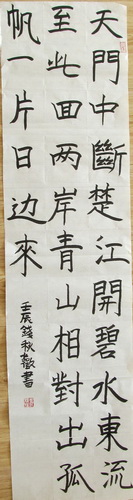 天門中斷楚江開碧水東流
至此回两岸青山相對出孤
帆一片日边來
壬辰錢秋歡書